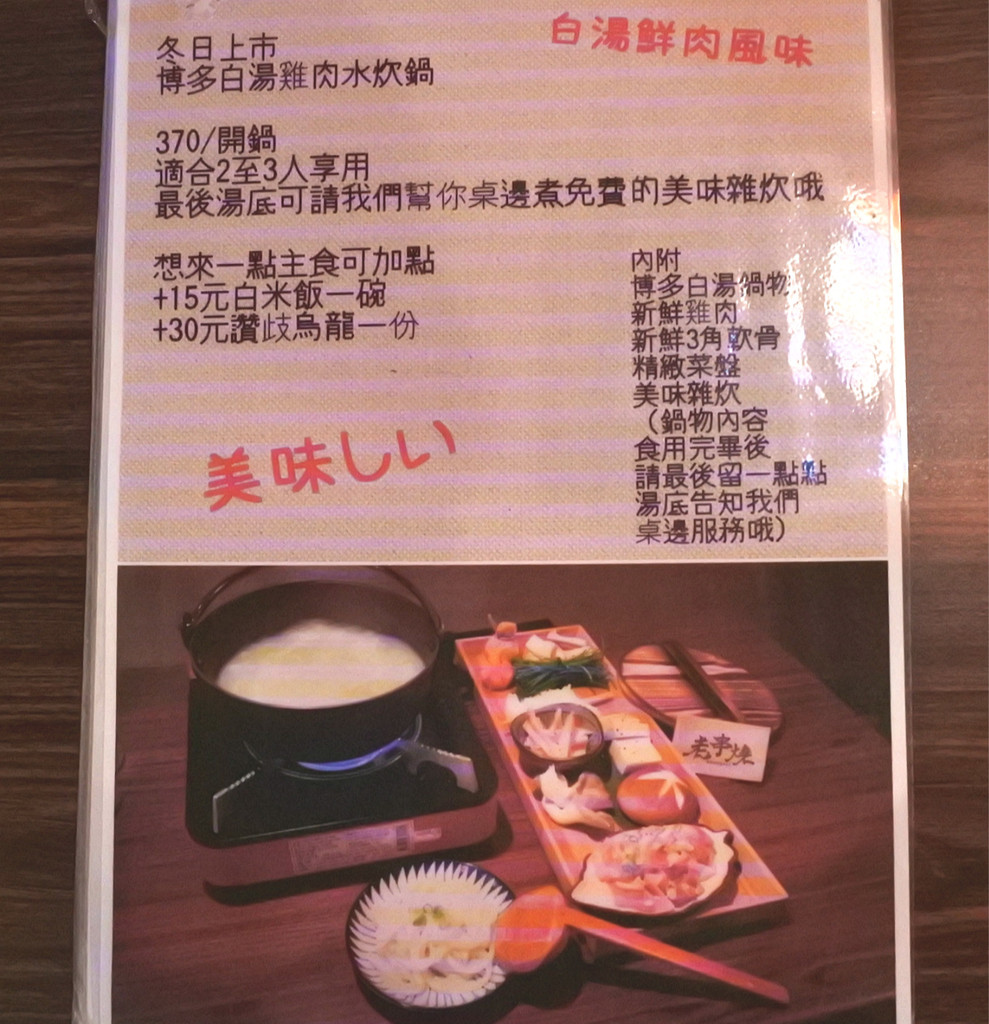 白湯鮮肉風味
冬日上市
博多白湯雞肉水炊鍋
370/開鍋
適合2至3人享用
最後湯底可請我們幫你桌邊煮免費的美味雜炊哦
想來一點主食可加點
+15元白米飯一碗
+30元讚歧烏龍一份
美味しい
內附
博多白湯鍋物
新鮮雞肉
新鮮3角軟骨
精緻菜盤
美味雜炊
（鍋物內容
食用完畢後
請最後留一點點
湯底告知我們
桌邊服務哦）